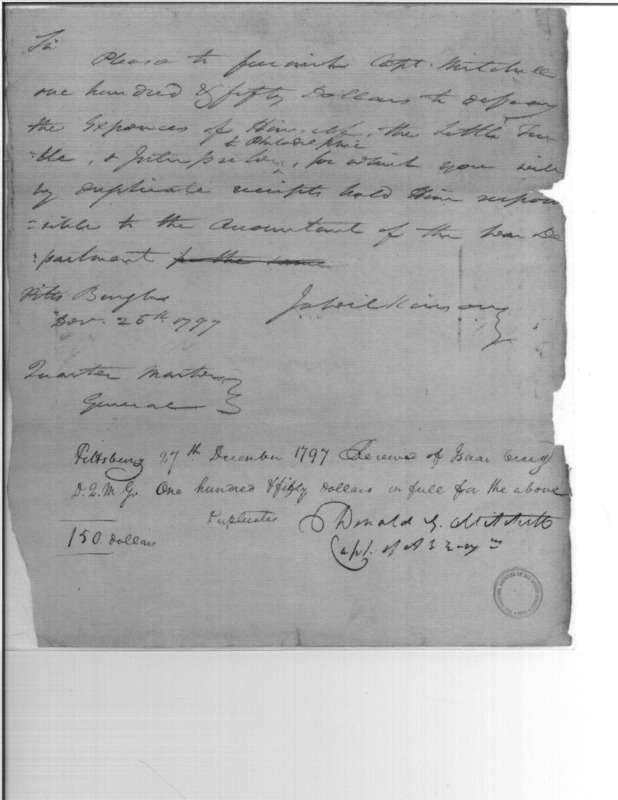 Sir
Please to furnish Capt. Mitchell
one hundred & fifty Dollars to defray
the Expences of Himself, the Little Tur
to Philadelphia
-tle, & Interpreter, for which you will
by duplicate receipts hold Him respon
=sible to the Accountant of the War De
:partment for the same
Pitts Burgh
Dec. 26th 1797
Ja Wilkinson
Quarter Master
General
Pittsburg 27th December 1797 Received of Isaac Craig
D.Q.M.G. One hundred & fifty dollars in full for the above
Duplicates
Donald G. Mitchell
150 dollars
Capt. of A & E